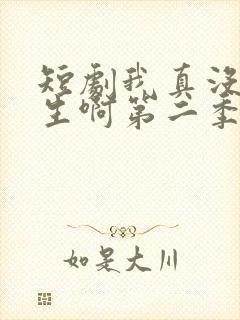 短劇我真没
生啊第二季
如是大川